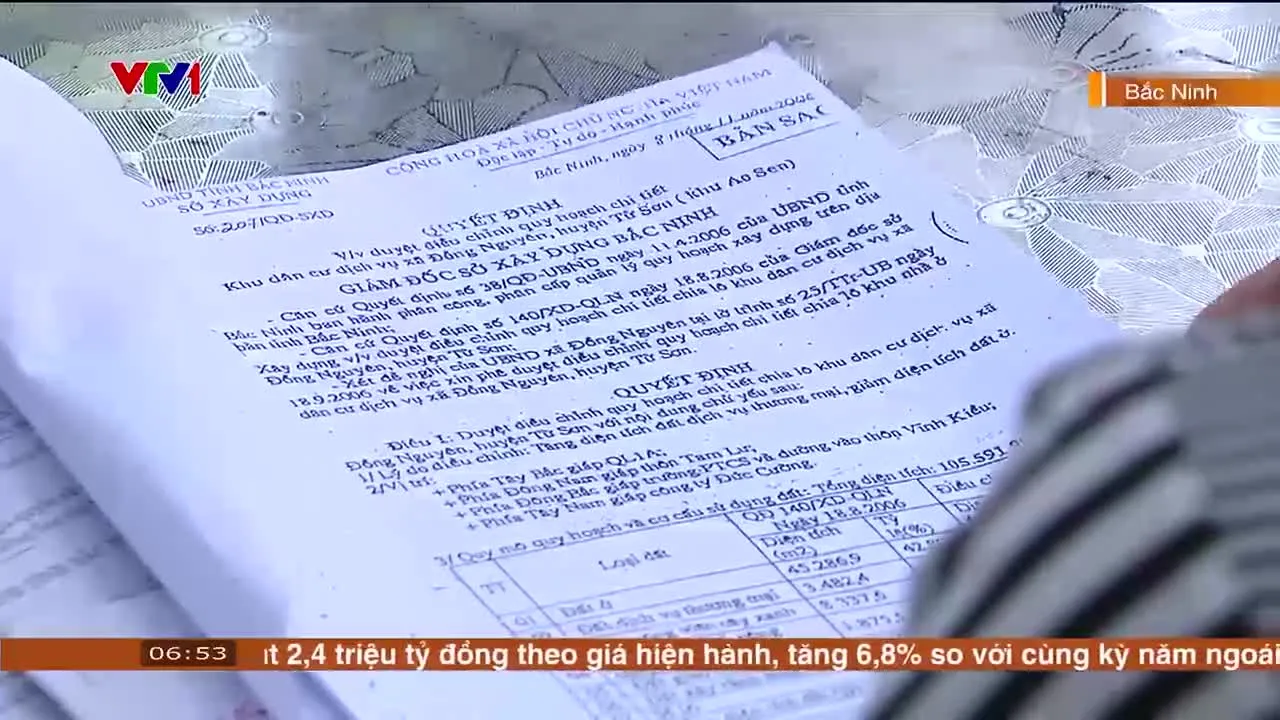 VTV1
Bắc Ninh
CỘNG HOÀ XÃ HỘI CHỦ NGHĨA VIỆT NAM
Độc lập - Tự do - Hạnh phúc
Bắc Ninh, ngày 8 tháng 11 năm 2006
BẢN SA
UBND TỈNH BẮC NINH
SỞ XÂY DỰNG
Số: 207/QĐ-SXD
QUYẾT ĐỊNH
V/v duyệt điều chỉnh quy hoạch chi tiết
Khu dân cư dịch vụ xã Đồng Nguyên, huyện Từ Sơn ( khu Ao Sen)
GIÁM ĐỐC SỞ XÂY DỰNG BẮC NINH
- Căn cứ Quyết định số 38/QĐ-UBND ngày 11.4.2006 của UBND tỉnh
Bắc Ninh ban hành phân công, phân cấp quản lý quy hoạch xây dựng trên địa
bàn tỉnh Bắc Ninh;
- Căn cứ Quyết định số 140/XD-QLN ngày 18.8.2006 của Giám đốc sở
Xây dựng v/v duyệt điều chỉnh quy hoạch chi tiết chia lô khu dân cư dịch vụ xã
Đồng Nguyên, huyện Từ Sơn.
- Xét đề nghị của UBND xã Đồng Nguyên tại tờ trình số 25/TTr-UB ngày
18.9.2006 về việc xin phê duyệt điều chỉnh quy hoạch chi tiết chia lô khu nhà ở
dân cư dịch vụ xã Đồng Nguyên, huyện Từ Sơn.
QUYẾT ĐỊNH
Điều I: Duyệt điều chỉnh quy hoạch chi tiết chia lô khu dân cư dịch vụ xã
Đồng Nguyên, huyện Từ Sơn với nội dung chủ yếu sau:
1/ Lý do điều chỉnh: Tăng diện tích đất dịch vụ thương mại, giảm diện tích đất ở.
2/ Vị trí:
+ Phía Tây Bắc giáp QL1A;
+ Phía Đông Nam giáp thôn Tam Lư;
+ Phía Đông Bắc giáp trường PTCS và đường vào thôn Vĩnh Kiều;
+ Phía Tây Nam giáp công ty Đức Cường.
3/ Quy mô quy hoạch và cơ cấu sử dụng đất: Tổng diện tích: 105.591
TT
Loại đất
QĐ 140/XD-QLN
Ngày 18.8.2006
Điều
Diện tích
(m2)
Tỷ
lệ(%)
01
Đất ở
45.286,9
42,
Đất dịch vụ thương mại
3.482,4
cây xanh
8.337,6
06:53
t 2,4 triệu tỷ đồng theo giá hiện hành, tăng 6,8% so với cùng kỳ năm ngoái